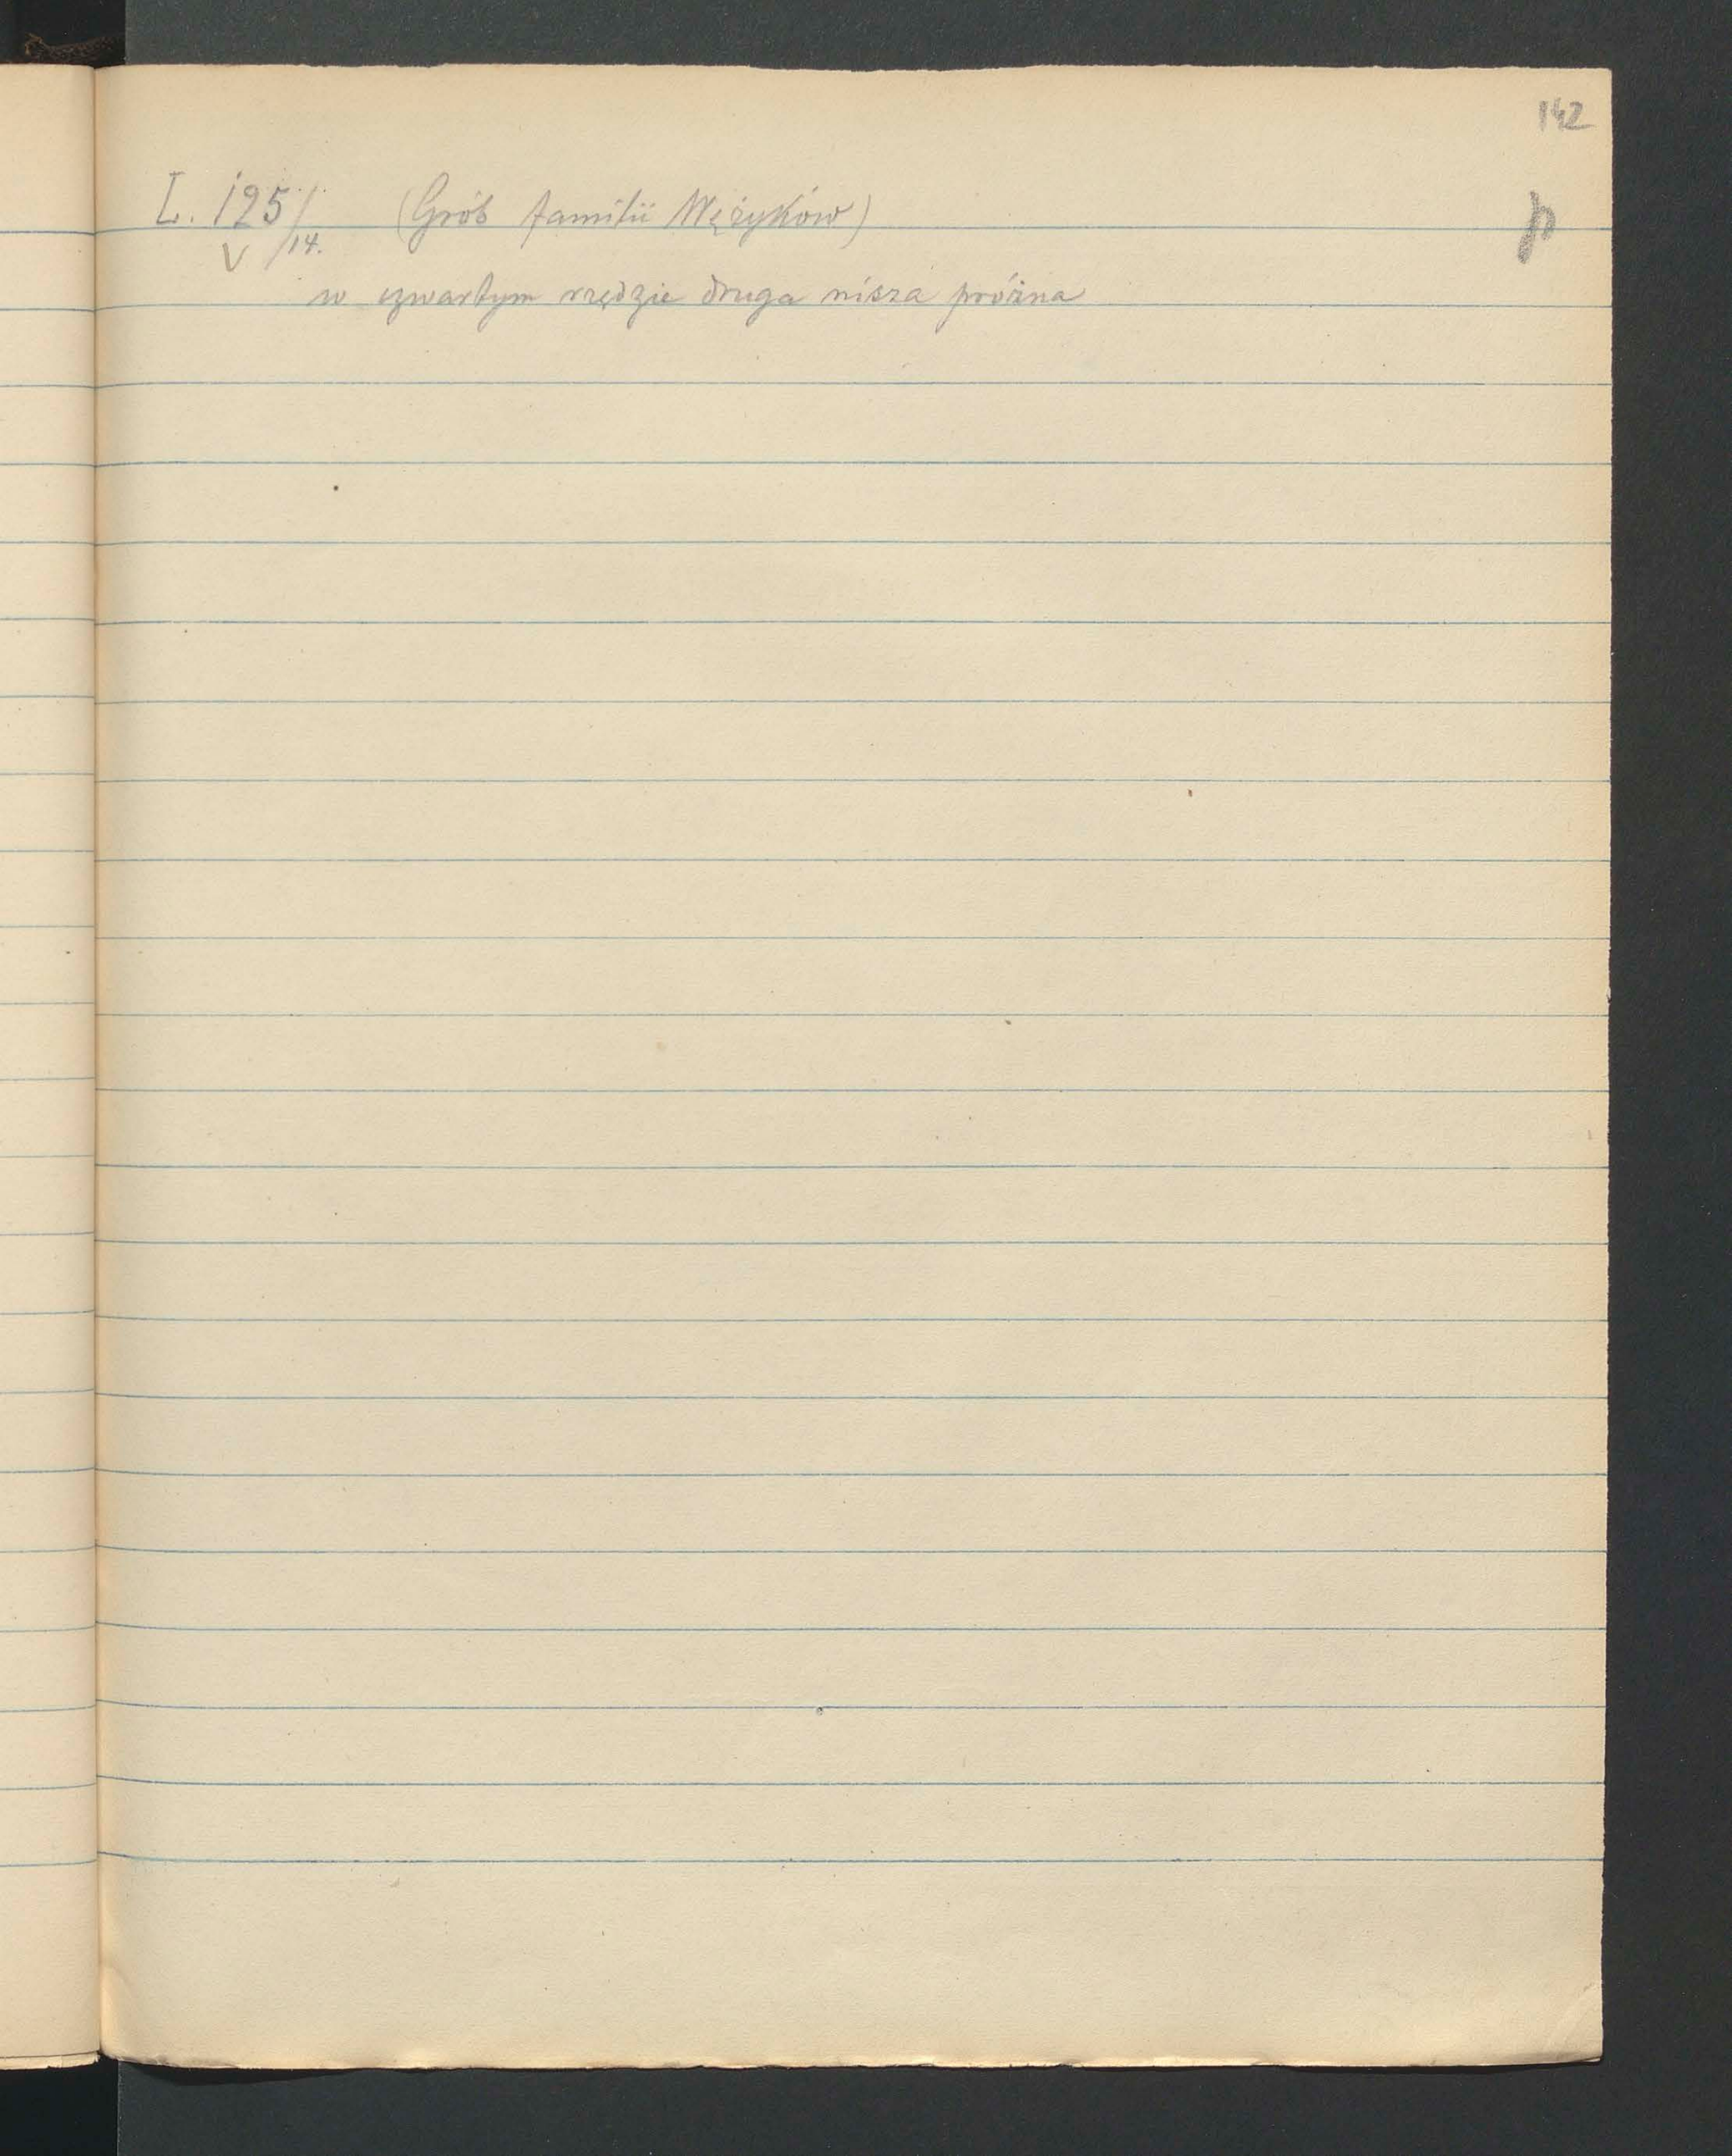 142
L. 125/14. (Grób familii Mężyków) p
V
w czwartym rzędzie druga nisza próżna